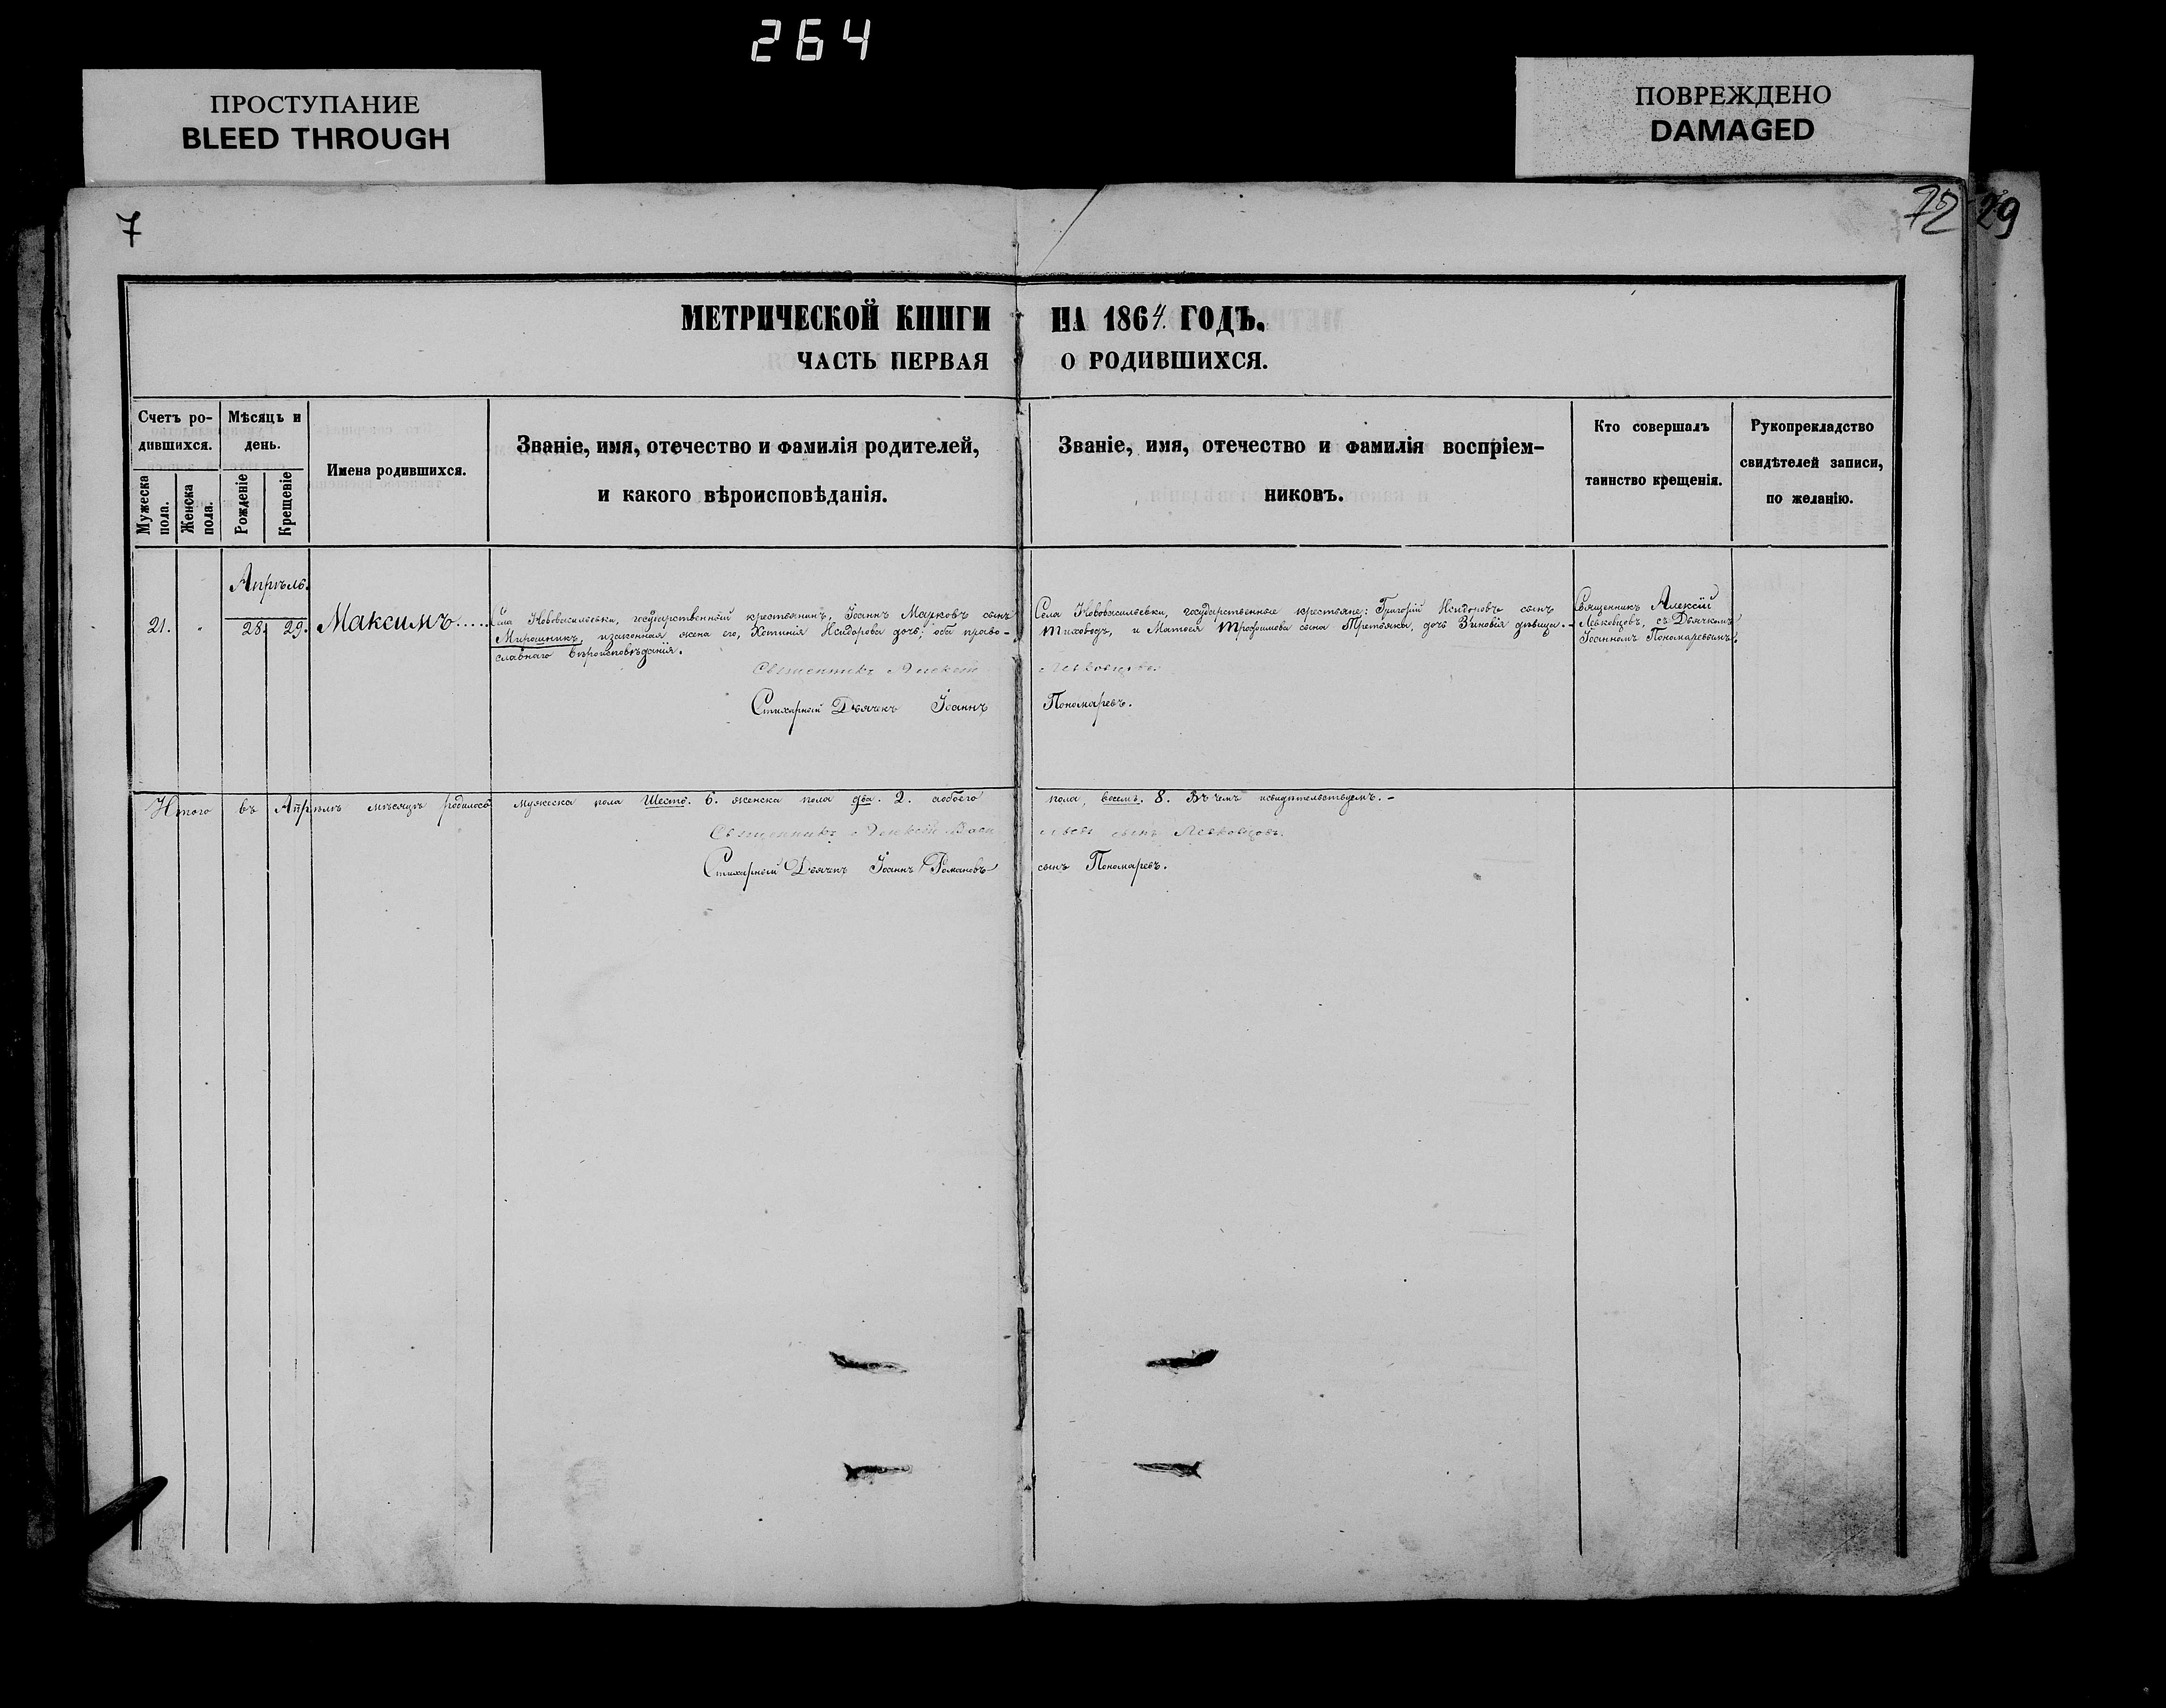 264
ПРОСТУПАНИЕ
BLEED THROUGH
ПОВРЕЖДЕНО
DAMAGED
7
72
29
МЕТРИЧЕСКОЙ КНИГИ НА 1864. ГОДЪ.
ЧАСТЬ ПЕРВАЯ О РОДИВШИХСЯ.
Счетъ ро-
дившихся.
Мужеска
пола.
Женска
пола.
Мѣсяцъ и
день.
Рожденіе
Крещеніе
Имена родившихся.
Званіе, имя, отечество и фамилія родителей,
и какого вѣроисповѣданія.
Званіе, имя, отечество и фамилія воспріем-
никовъ.
Кто совершалъ
таинство крещенія.
Рукоприкладство
свидѣтелей записи,
по желанію.
Апрѣль.
21. " 28. 29. Максимъ.....
Села Нововасильевки, государственный крестьянинъ, Іоаннъ Марковъ сынъ
Мирошникъ, изаконная жена его, Хотинія Исидорова дочь; оба право-
славнаго вѣроисповѣданія.
Села Нововасильевки, государственные крестьяне: Григорій Исидоровъ сынъ
Тиховодъ, и Матвея Трофимова сына Третьяка, дочь Зиновія дѣвица.-
Священникъ Алексій
Левковцовъ, съ Дьячкомъ
Іоанномъ Пономаревымъ.
Священникъ Алексій Левковцовъ.
Стихарный Дьячекъ Іоаннъ Пономаревъ.
Итого въ Апрѣлѣ мѣсяцѣ родилось мужеска пола шесть. 6. женска пола два. 2. аобоего пола, восемь. 8. Въ чемъ исвидѣтельствуемъ.-
Священникъ Алексій Васильевъ сынъ Левковцовъ.
Стихарный Дьячекъ Іоаннъ Романовъ сынъ Пономаревъ.